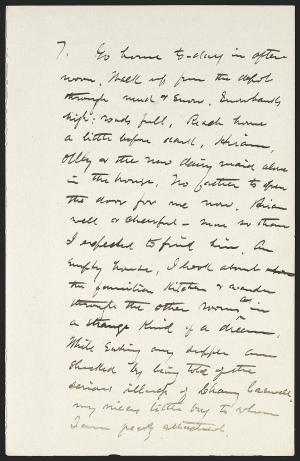 7. Go home to-day in after
noon. Walk up from the depot
through mud & snow. Snowbanks
high; roads full. Reach home
a little before dark. Hiram,
Olly & the new dairy maid alone
in the house. No father to open
the door for me now. Hiram
well & cheerful - more so than
I expected to find him. An
empty house, I look about
the familiar kitchen & wander
through the other rooms as in
a strange kind of a dream.
While eating my supper am
shocked by being told of the
serious illness of Channy Caswell,
my nieces little boy to whom
I am greatly attached.